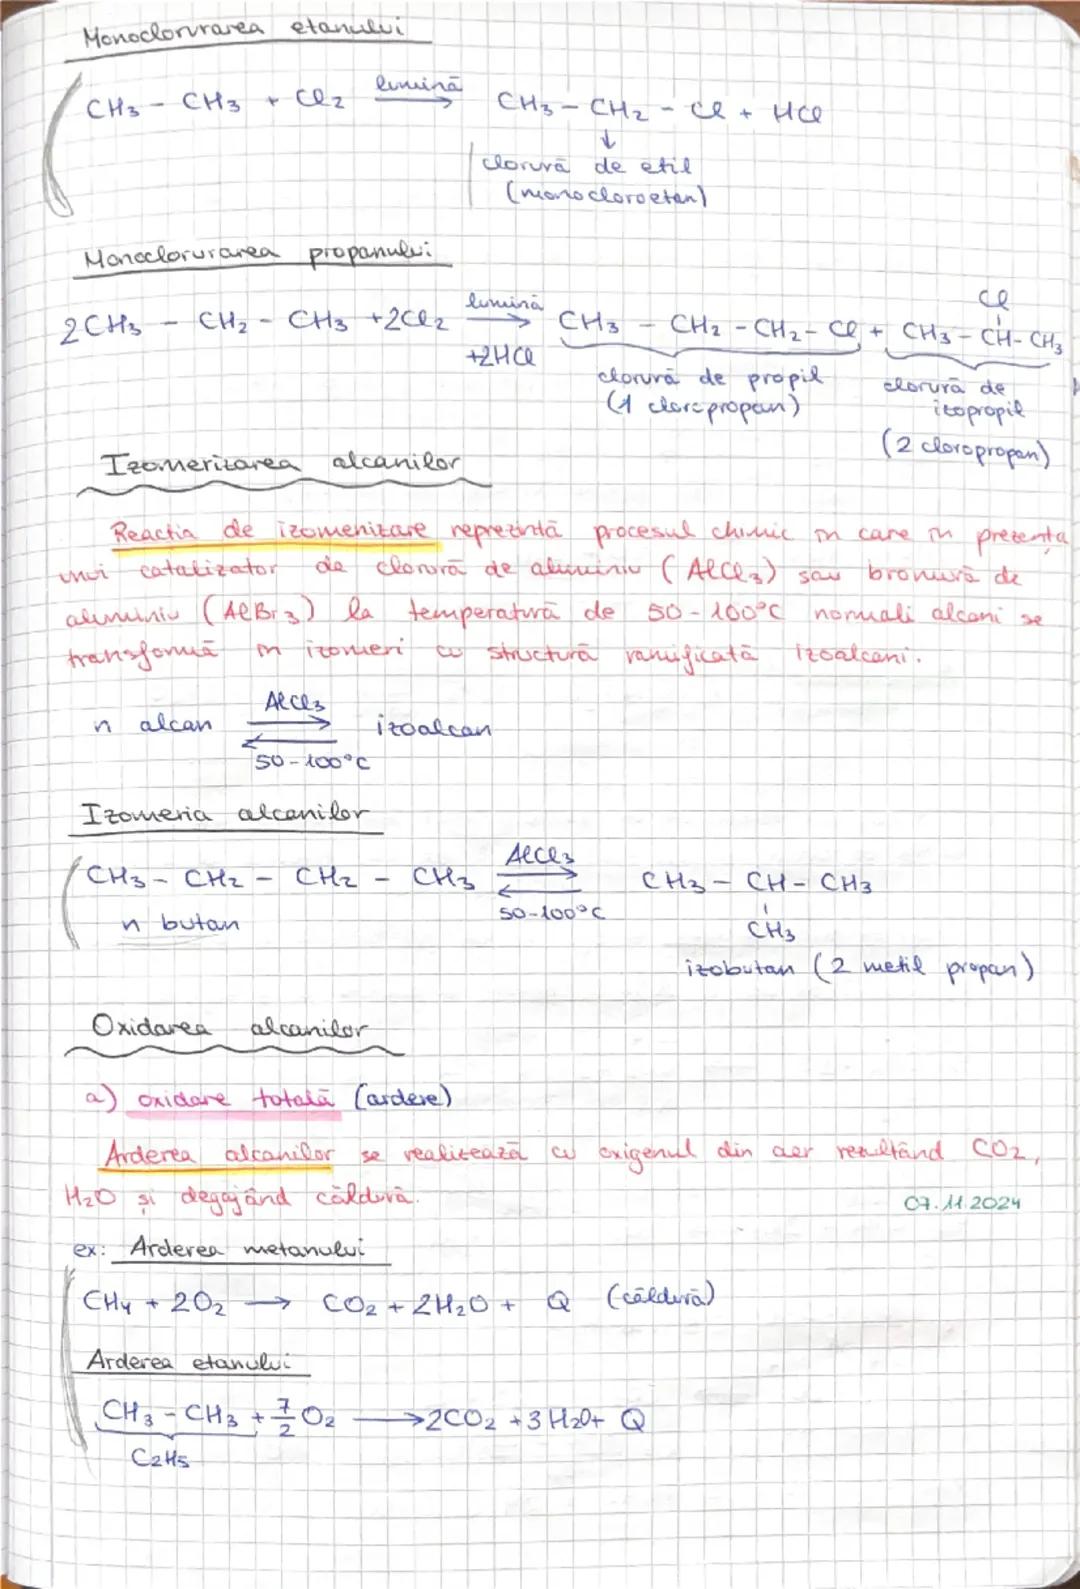 Monoclorurarea etanului
CH3 - CH3 + Cl2 lumină → CH3 - CH2 - Cl + HCl
↓
clorură de etil
(monocloroetan)
Monoclorurarea propanului
2CH3 - CH2 - CH3 + 2Cl2 lumină → CH3 - CH2 - CH2 - Cl + CH3 - CH - CH3
Cl
+2HCl
clorură de propil
(1 cloropropan)
clorură de
izopropil
(2 cloropropan)
Izomerizarea alcanilor
Reactia de izomerizare reprezintă procesul chimic în care în prezența
unui catalizator de clorură de aluminiu (AlCl3) sau bromură de
aluminiu (AlBr3) la temperatură de 50 - 100°C normali alcani se
transformă în izomeri cu structură ramificată izoalcani.
n alcan AlCl3 ⇄ 50 - 100°C izoalcan
Izomeria alcanilor
CH3 - CH2 - CH2 - CH3 AlCl3 ⇄ 50-100°C CH3 - CH - CH3
n butan
CH3
izobutan (2 metil propan)
Oxidarea alcanilor
a) oxidare totală (ardere)
Arderea alcanilor se realizează cu oxigenul din aer rezultând CO2,
H2O și degajând căldură.
07.11.2024
ex: Arderea metanului
CH4 + 2O2 → CO2 + 2H2O + Q (căldură)
Arderea etanului
CH3 - CH3 + 7/2 O2 → 2CO2 + 3H2O + Q
C2H5